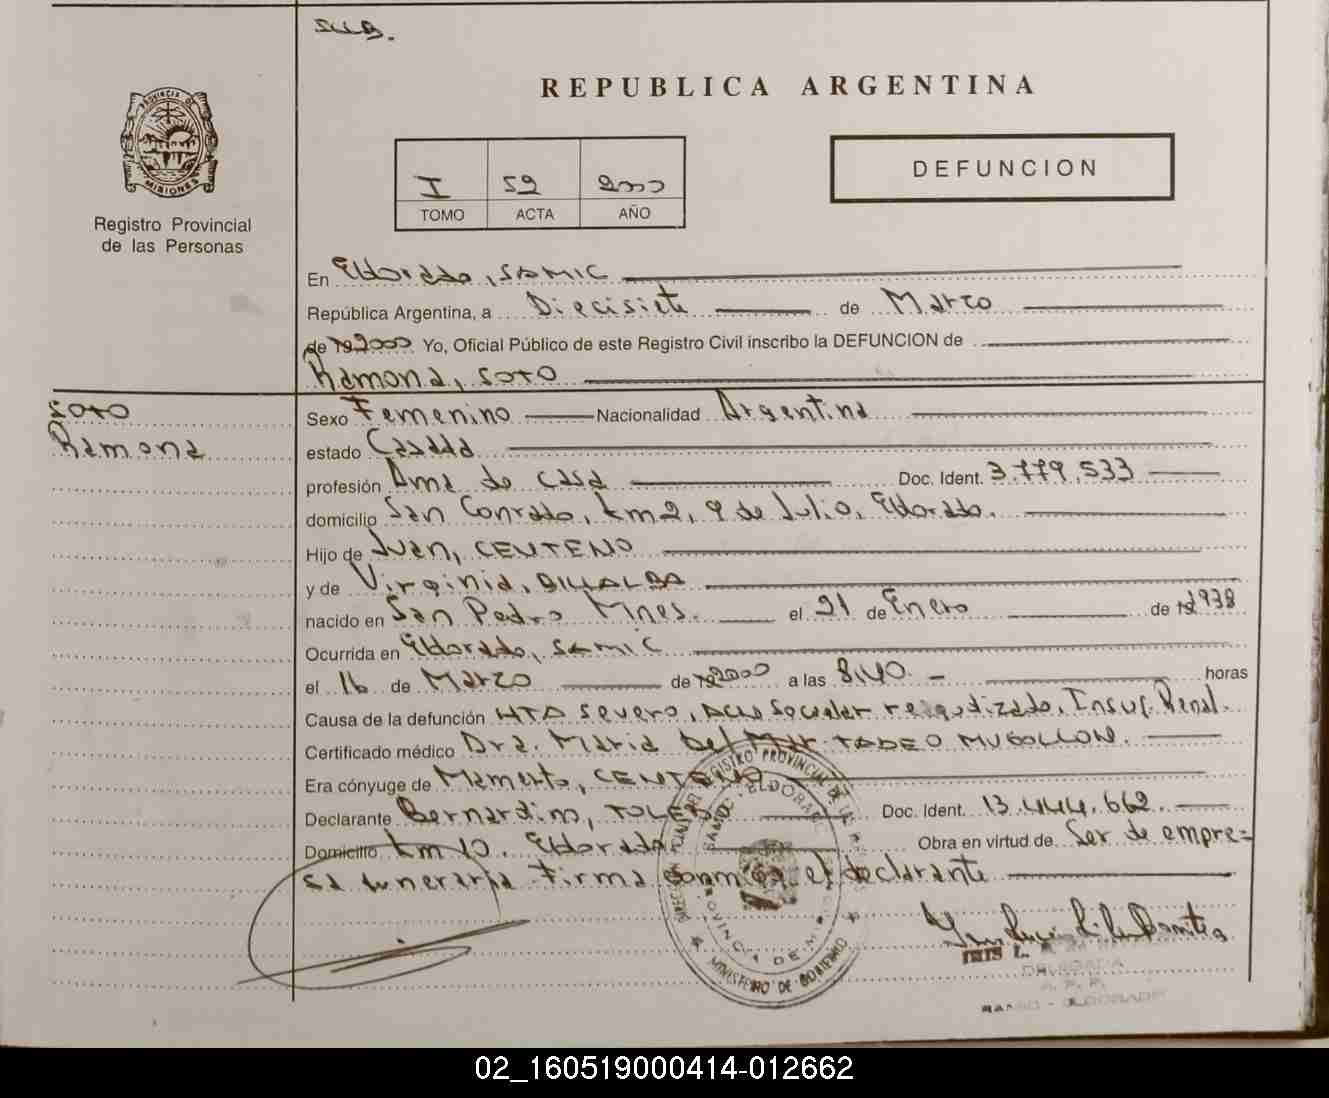 SUB.
REPUBLICA ARGENTINA
PROVINCIA DE
MISIONES
Registro Provincial
de las Personas
I 52 2000
TOMO ACTA AÑO
DEFUNCION
En Eldorado, SAMIC
República Argentina, a Diecisiete de Marzo
de 2000 Yo, Oficial Público de este Registro Civil inscribo la DEFUNCION de
Ramona, SOTO
SOTO
Ramona
Sexo Femenino Nacionalidad Argentina
estado Casada
profesión Ama de casa Doc. Ident. 3.779.533
domicilio San Conrado, km 2, 9 de Julio, Eldorado.
Hijo de Juan, CENTENO
y de Virginia,
nacido en San Pedro Mnes. el 21 de Enero de 1938
Ocurrida en Eldorado, SAMIC
el 16 de Marzo de 2000 a las 8,40 horas
Causa de la defunción HTA severo, Insuf. Renal.
Certificado médico Dra. Maria Del Mar TADEO MUGOLLON.
Era cónyuge de Memerto, CENTENO
Declarante Bernardino, TOLEDO Doc. Ident. 13.444.662
Domicilio km 10, Eldorado Obra en virtud de Ser de empre=
sa funeraria Firma conmigo el declarante
DIRECCION REGISTRO PROVINCIAL DE
SAMIC - ELDORADO
PROVINCIA DE
MINISTERIO DE GOBIERNO
L.
DELEGADA
SAMIC - ELDORADO
02_160519000414-012662